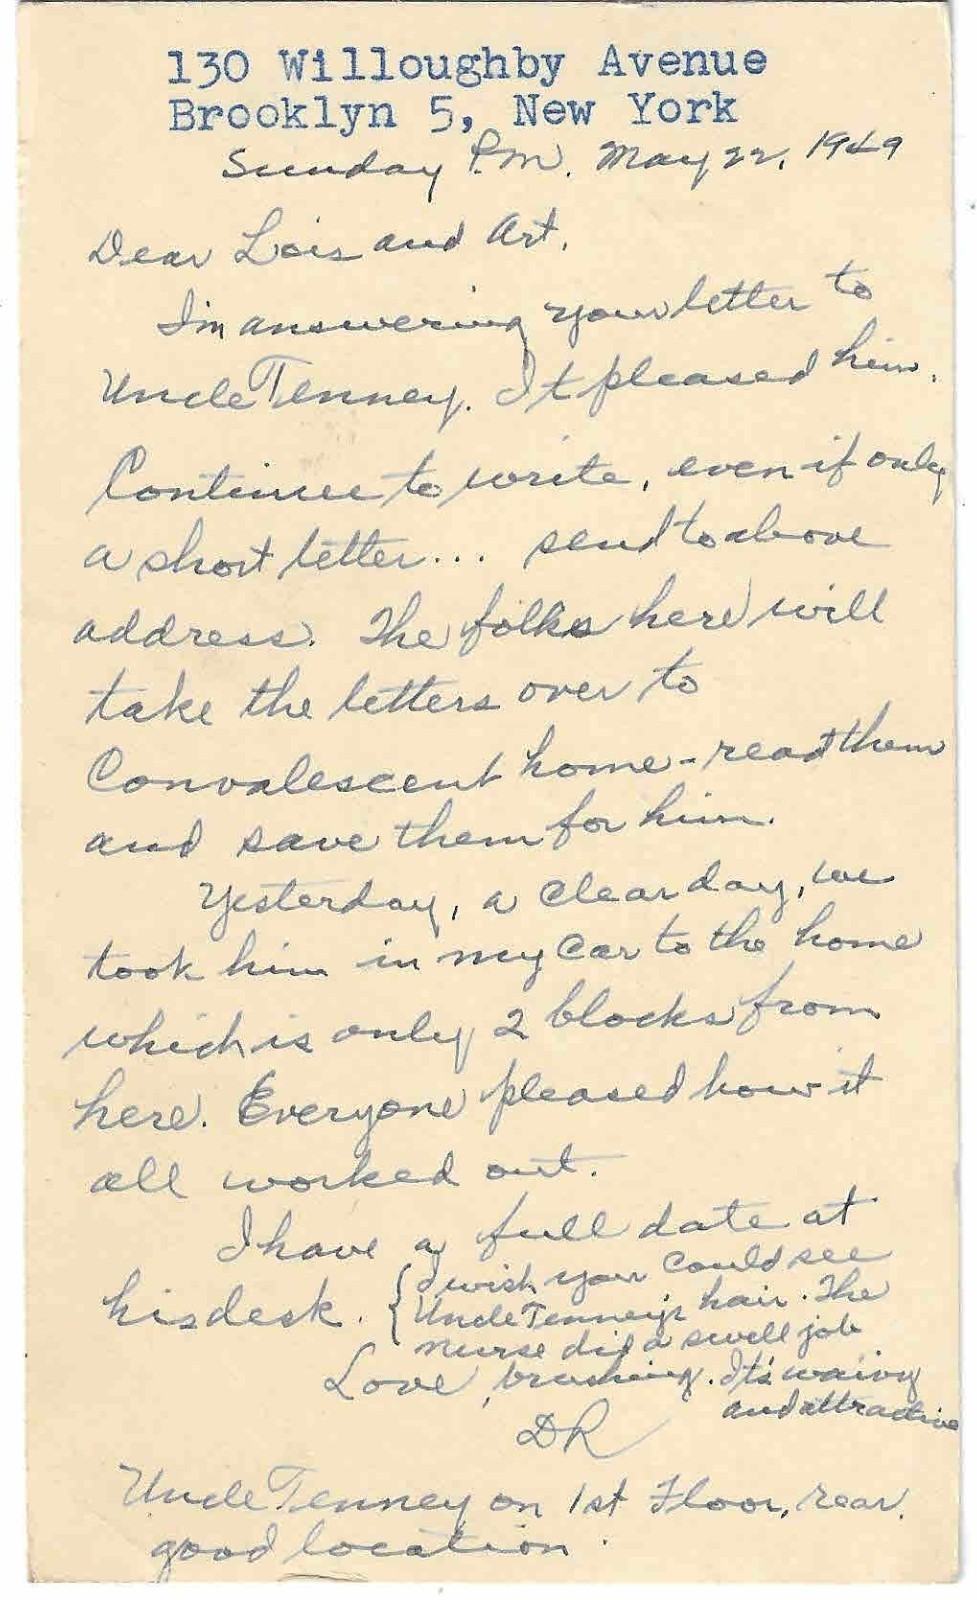 130 Willoughby Avenue
Brooklyn 5, New York
Sunday P.M. May 22, 1949
Dear Lois and Art,
I'm answering your letter to
Uncle Tenney. It pleased him.
Continue to write, even if only
a short letter... send to above
address. The folks here will
take the letters over to
Convalescent home - read them
and save them for him.
Yesterday, a clear day, we
took him in my car to the home
which is only 2 blocks from
here. Everyone pleased how it
all worked out.
I have a full date at
his desk.
{ I wish you could see
Uncle Tenney's hair. The
nurse did a swell job
brushing. It's waivy
and attractive
Love,
DR
Uncle Tenney on 1st Floor, rear.
good location.